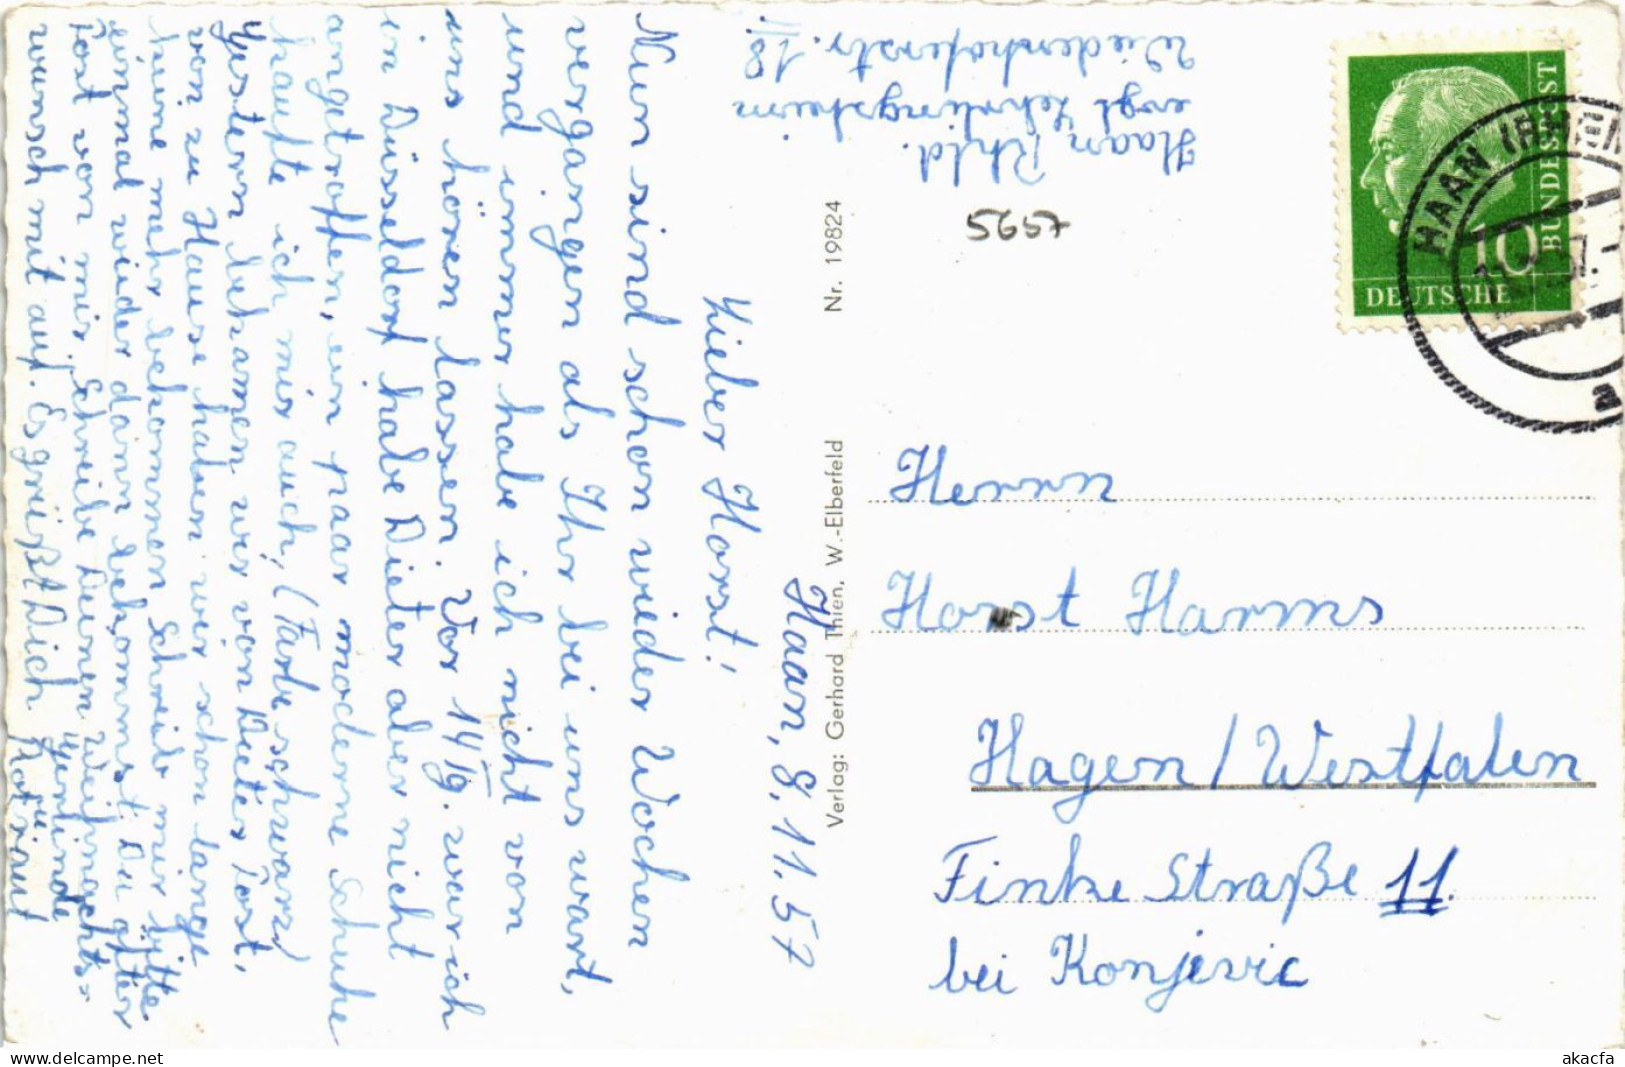 Haan, 8.11.57
Lieber Horst!
Nun sind schon wieder Wochen
vergangen als Ihr bei uns wart,
und immer habe ich nicht von
uns hören lassen. Vor 14 Tg. war ich
in Düsseldorf habe Dieter aber nicht
angetroffen, ein paar moderne Schuhe
kaufte ich mir auch, (Farbe schwarz)
Gestern bekamen wir von Dieter Post,
von zu Hause haben wir schon lange
keine mehr bekommen. Schreib mir bitte
einmal wieder dann bekommst Du öfter
Post von mir. Schreibe Deinen Weihnachts-
wunsch mit auf. Es grüßt Dich
u. Gerlinde
Haan, Rhld.
evgl. Lehrlingsheim
Wiedenhoferstr. 18
5657
Nr. 19824
Verlag: Gerhard Thien, W.-Elberfeld
DEUTSCHE
BUNDESPOST
10
HAAN (RHEINL
a
Herrn
Horst Harms
Hagen / Westfalen
Finke Straße 11
bei Konjevic
www.delcampe.net
akacfa